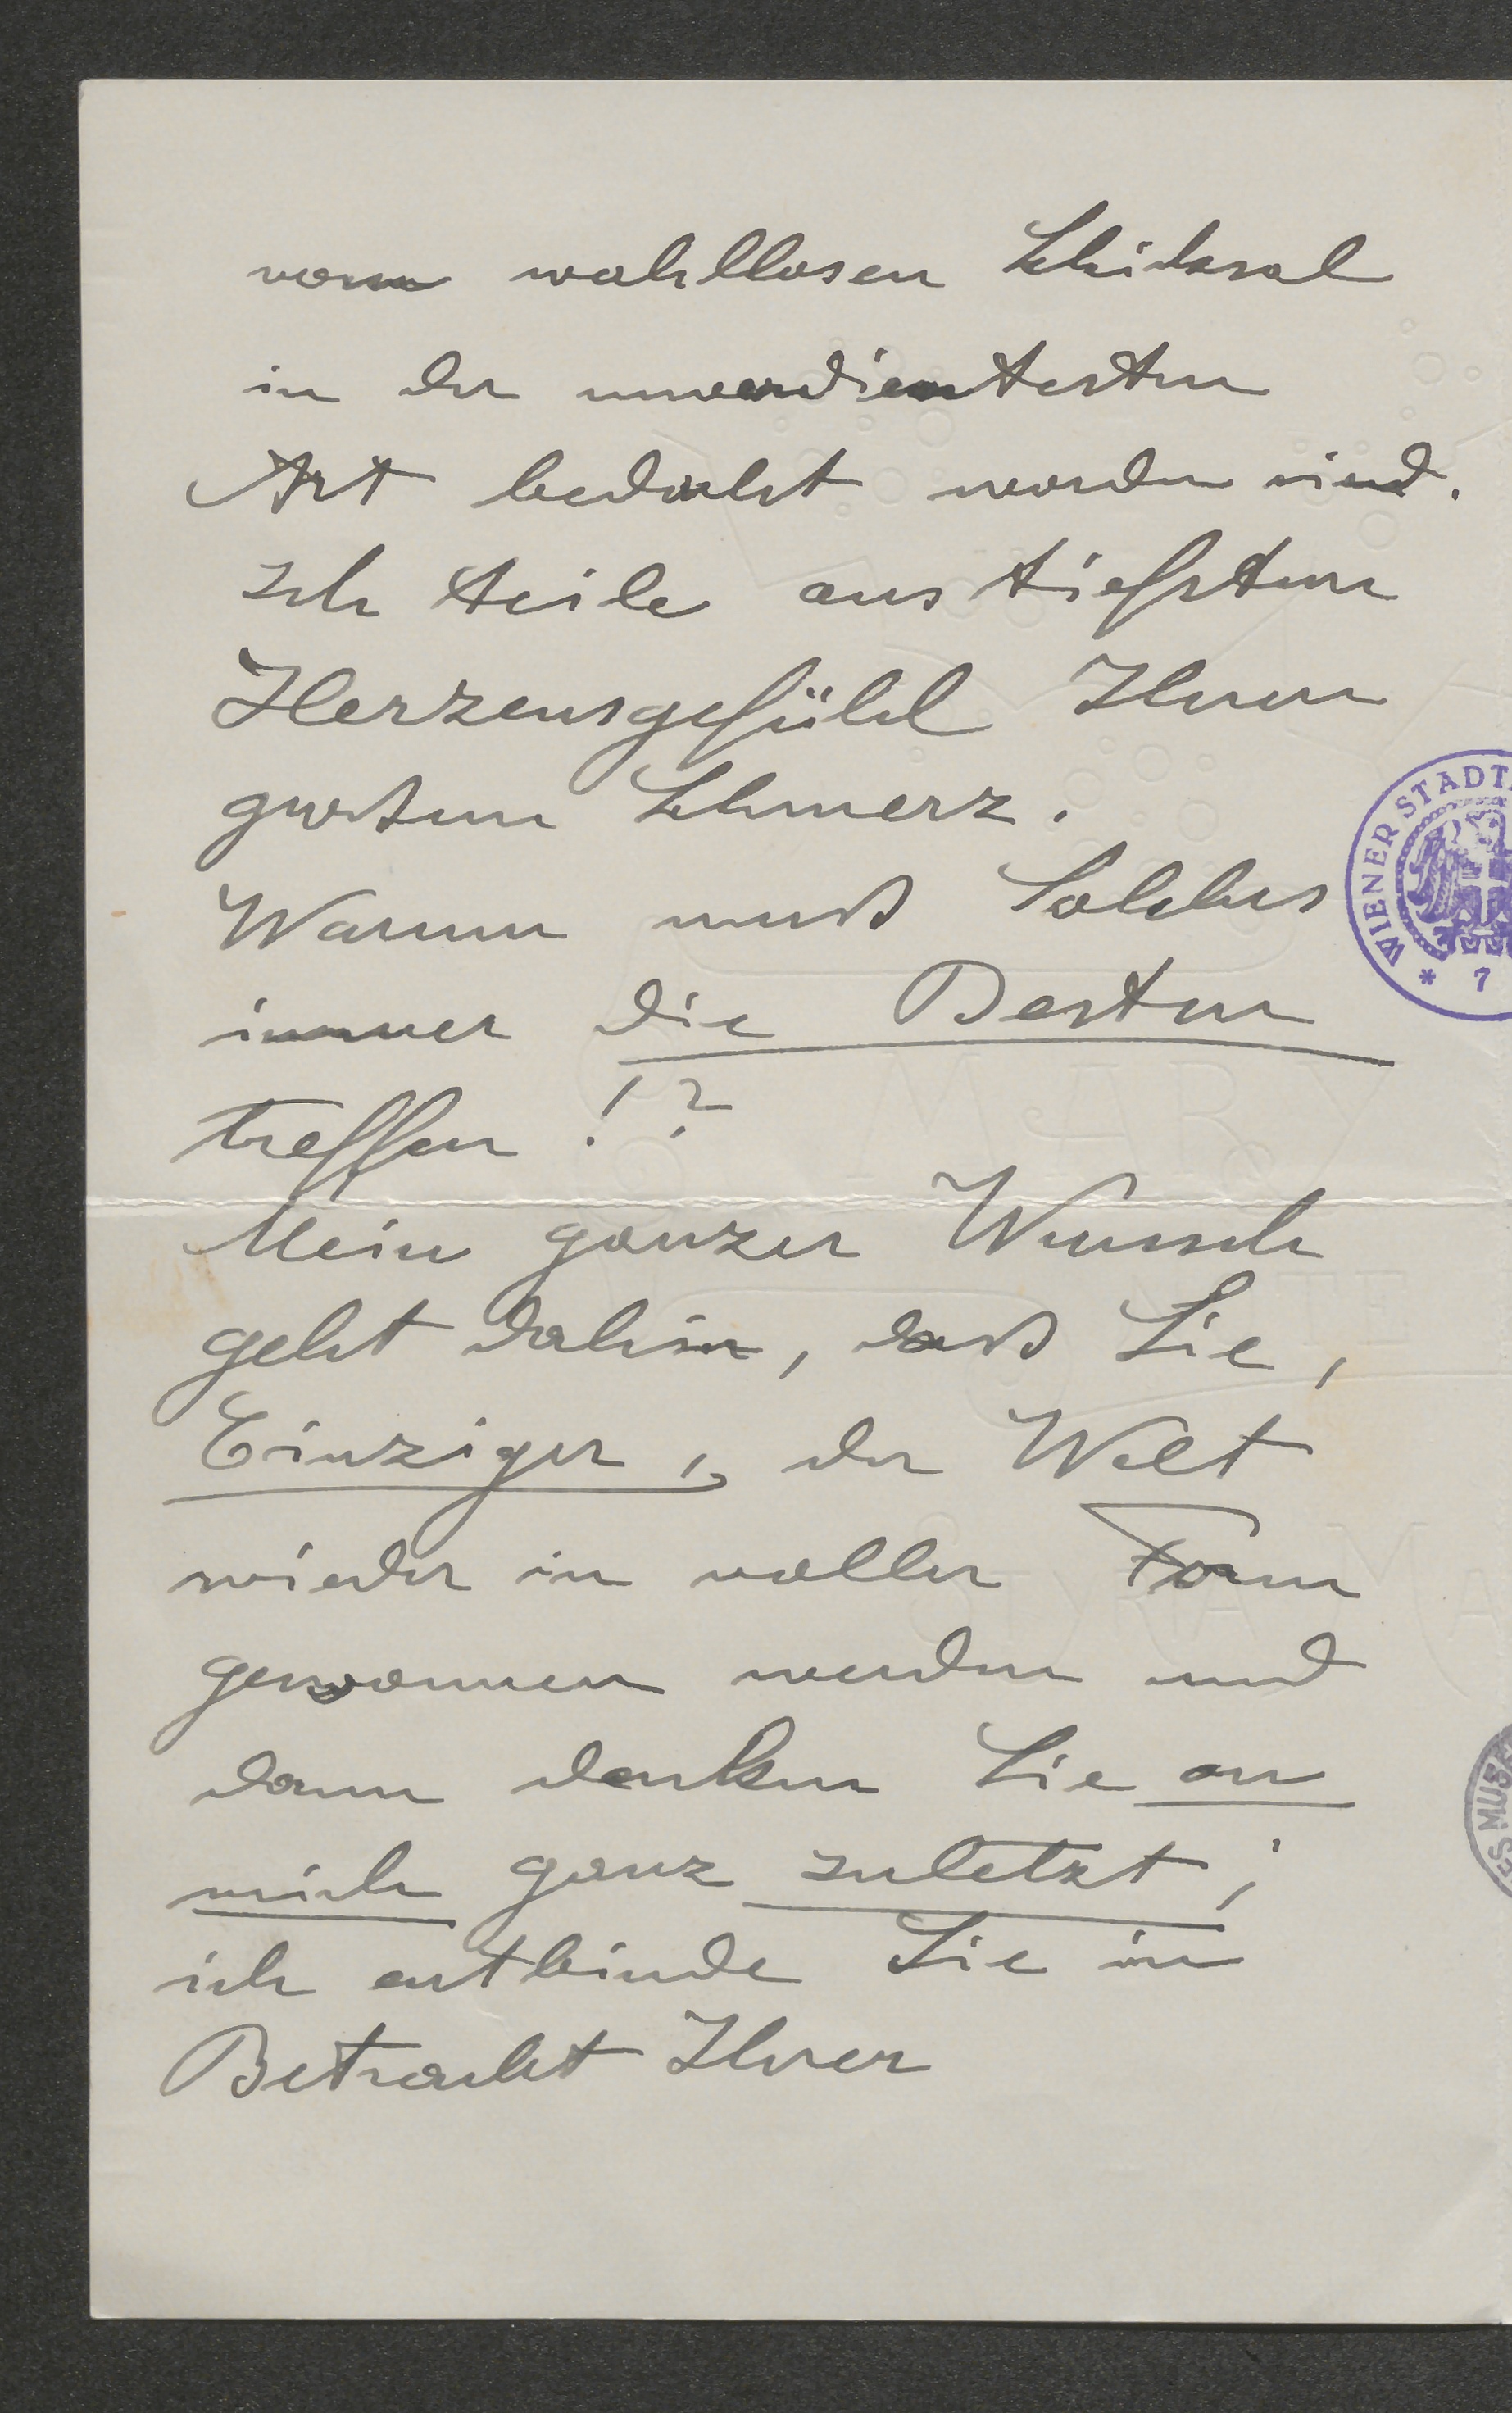 vom wahllosen Schicksal
in der unverdientesten
Art bedacht worden sind.
Ich teile aus tiefstem
Herzensgefühl Ihren
großen Schmerz.
Warum muß Solches
immer die Besten
treffen!?
Mein ganzer Wunsch
geht dahin, daß Sie,
Einziger, der Welt
wieder in voller Form
gewonnen werden und
dann denken Sie an
mich ganz zuletzt;
ich entbinde Sie in
Betracht Ihrer
WIENER STADT
* 7
ES MUS
MARY